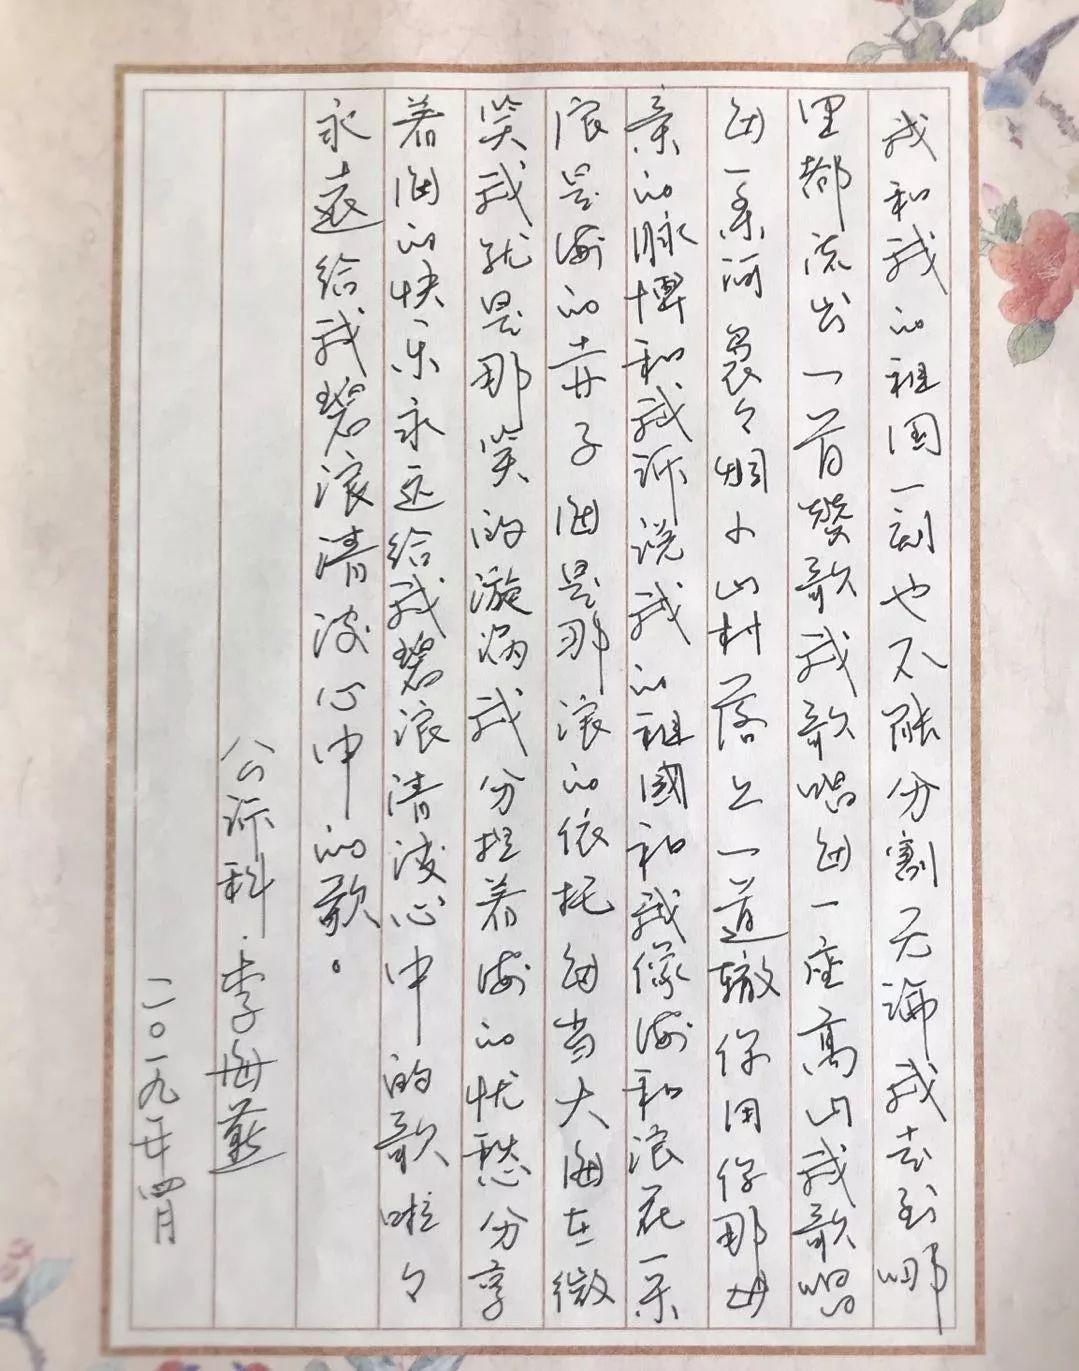 我和我的祖国一刻也不能分割无论我去到哪
里都流出一首赞歌我歌唱每一座高山我歌唱
每一条河袅々炊烟小小山村落上一道辙你用你那母
亲的脉搏和我诉说我的祖國和我像海和浪花一朵
浪是海的赤子海是那浪的依托每当大海在微
笑我就是那笑的漩涡我分担着海的忧愁分享
着海的快乐永远给我碧浪清波心中的歌啦々
永遠给我碧浪清波心中的歌。
公诉科·李海燕
二〇一九年四月